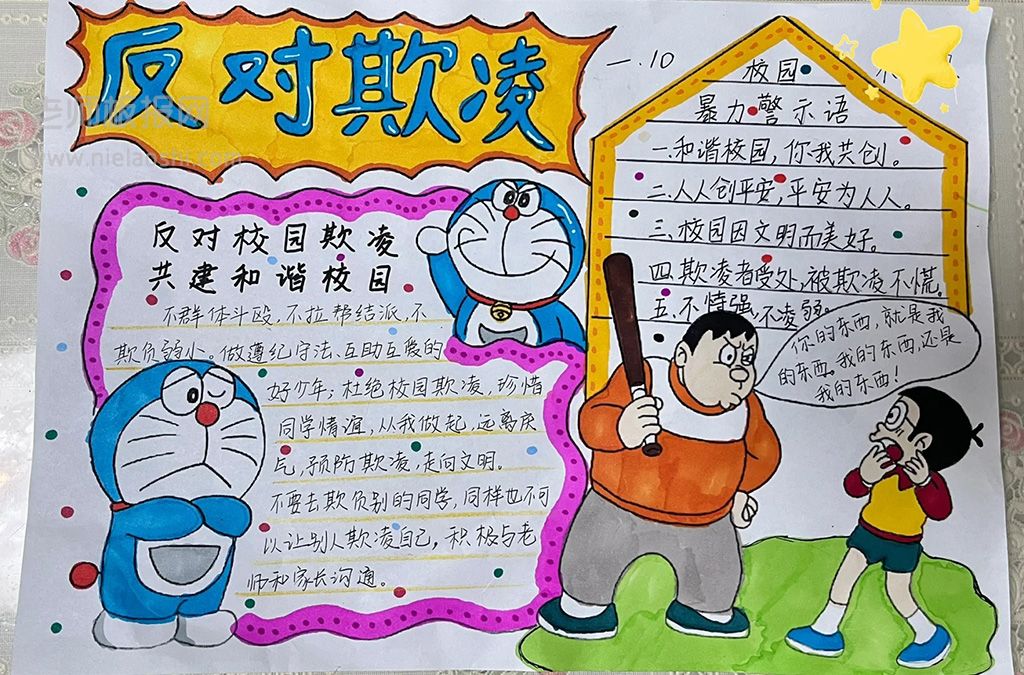 反对欺凌
www.nielaoshi.com
一.10
校园
暴力警示语
一.和谐校园,你我共创。
二.人人创平安,平安为人人。
三.校园因文明而美好。
四.欺凌者受处,被欺凌不慌。
五.不恃强,不凌弱。
反对校园欺凌
共建和谐校园
不群体斗殴,不拉帮结派,不
欺负弱小。做遵纪守法、互助互爱的
好少年;杜绝校园欺凌,珍惜
同学情谊,从我做起,远离戾
气,预防欺凌,走向文明。
不要去欺负别的同学,同样也不可
以让别人欺凌自己,积极与老
师和家长沟通。
你的东西,就是我
的东西。我的东西,还是
我的东西!